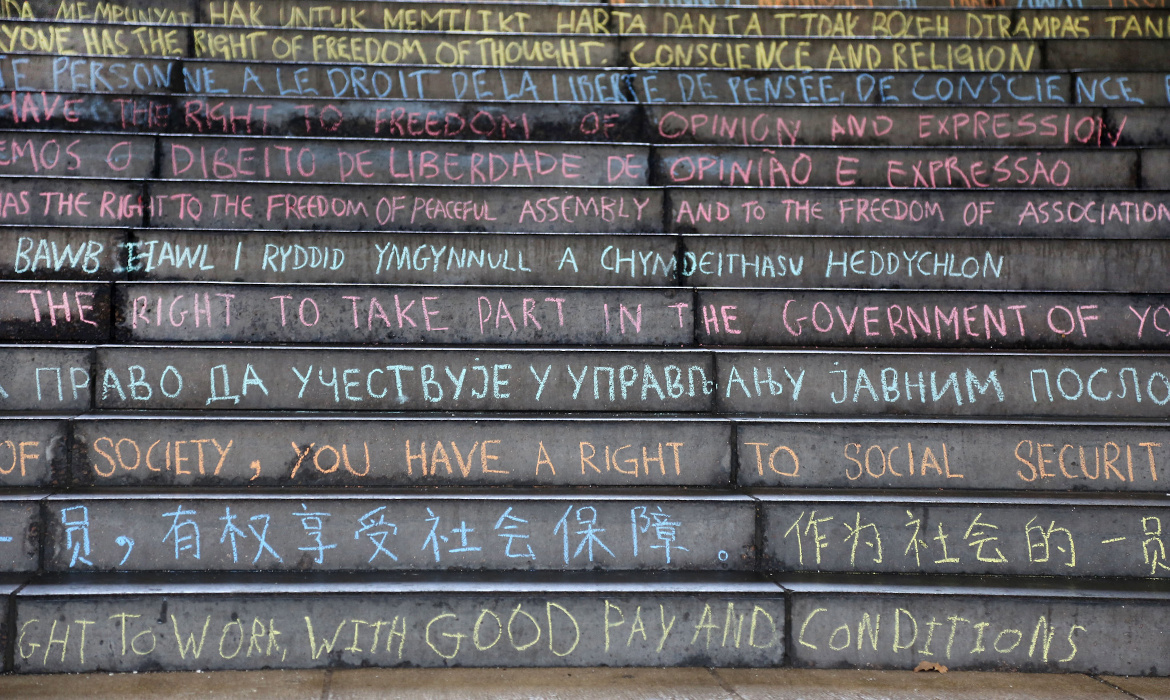 DA MEMPUNYAI HAK UNTUK MEMILIKI HARTA DAN IA TIDAK BOLEH DIRAMPAS TAN
YONE HAS THE RIGHT OF FREEDOM OF THOUGHT. CONSCIENCE AND RELIGION
E PERSONNE A LE DROIT DE LA LIBERTÉ DE PENSÉE, DE CONSCIENCE
HAVE THE RIGHT TO FREEDOM OF OPINION AND EXPRESSION
EMOS O DIREITO DE LIBERDADE DE OPINIÃO E EXPRESSÃO
HAS THE RIGHT TO THE FREEDOM OF PEACEFUL ASSEMBLY AND TO THE FREEDOM OF ASSOCIATION
BAWB HAWL I RYDDID YMGYNNULL A CHYMDEITHASU HEDDYCHLON
THE RIGHT TO TAKE PART IN THE GOVERNMENT OF YO
ПРАВО ДА УЧЕСТВУЈЕ У УПРАВЉАЊУ ЈАВНИМ ПОСЛО
OF SOCIETY, YOU HAVE A RIGHT TO SOCIAL SECURIT
一员，有权享受社会保障。作为社会的一员
GHT TO WORK, WITH GOOD PAY AND CONDITIONS